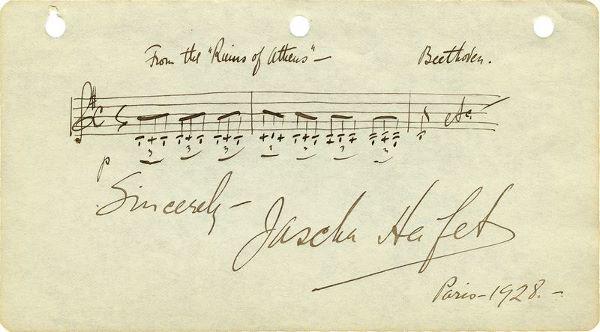 From the "Ruins of Athens" — Beethoven.
etc
p
3 3 3 3 3 3 3
Sincerely —
Jascha Heifetz
Paris — 1928. —